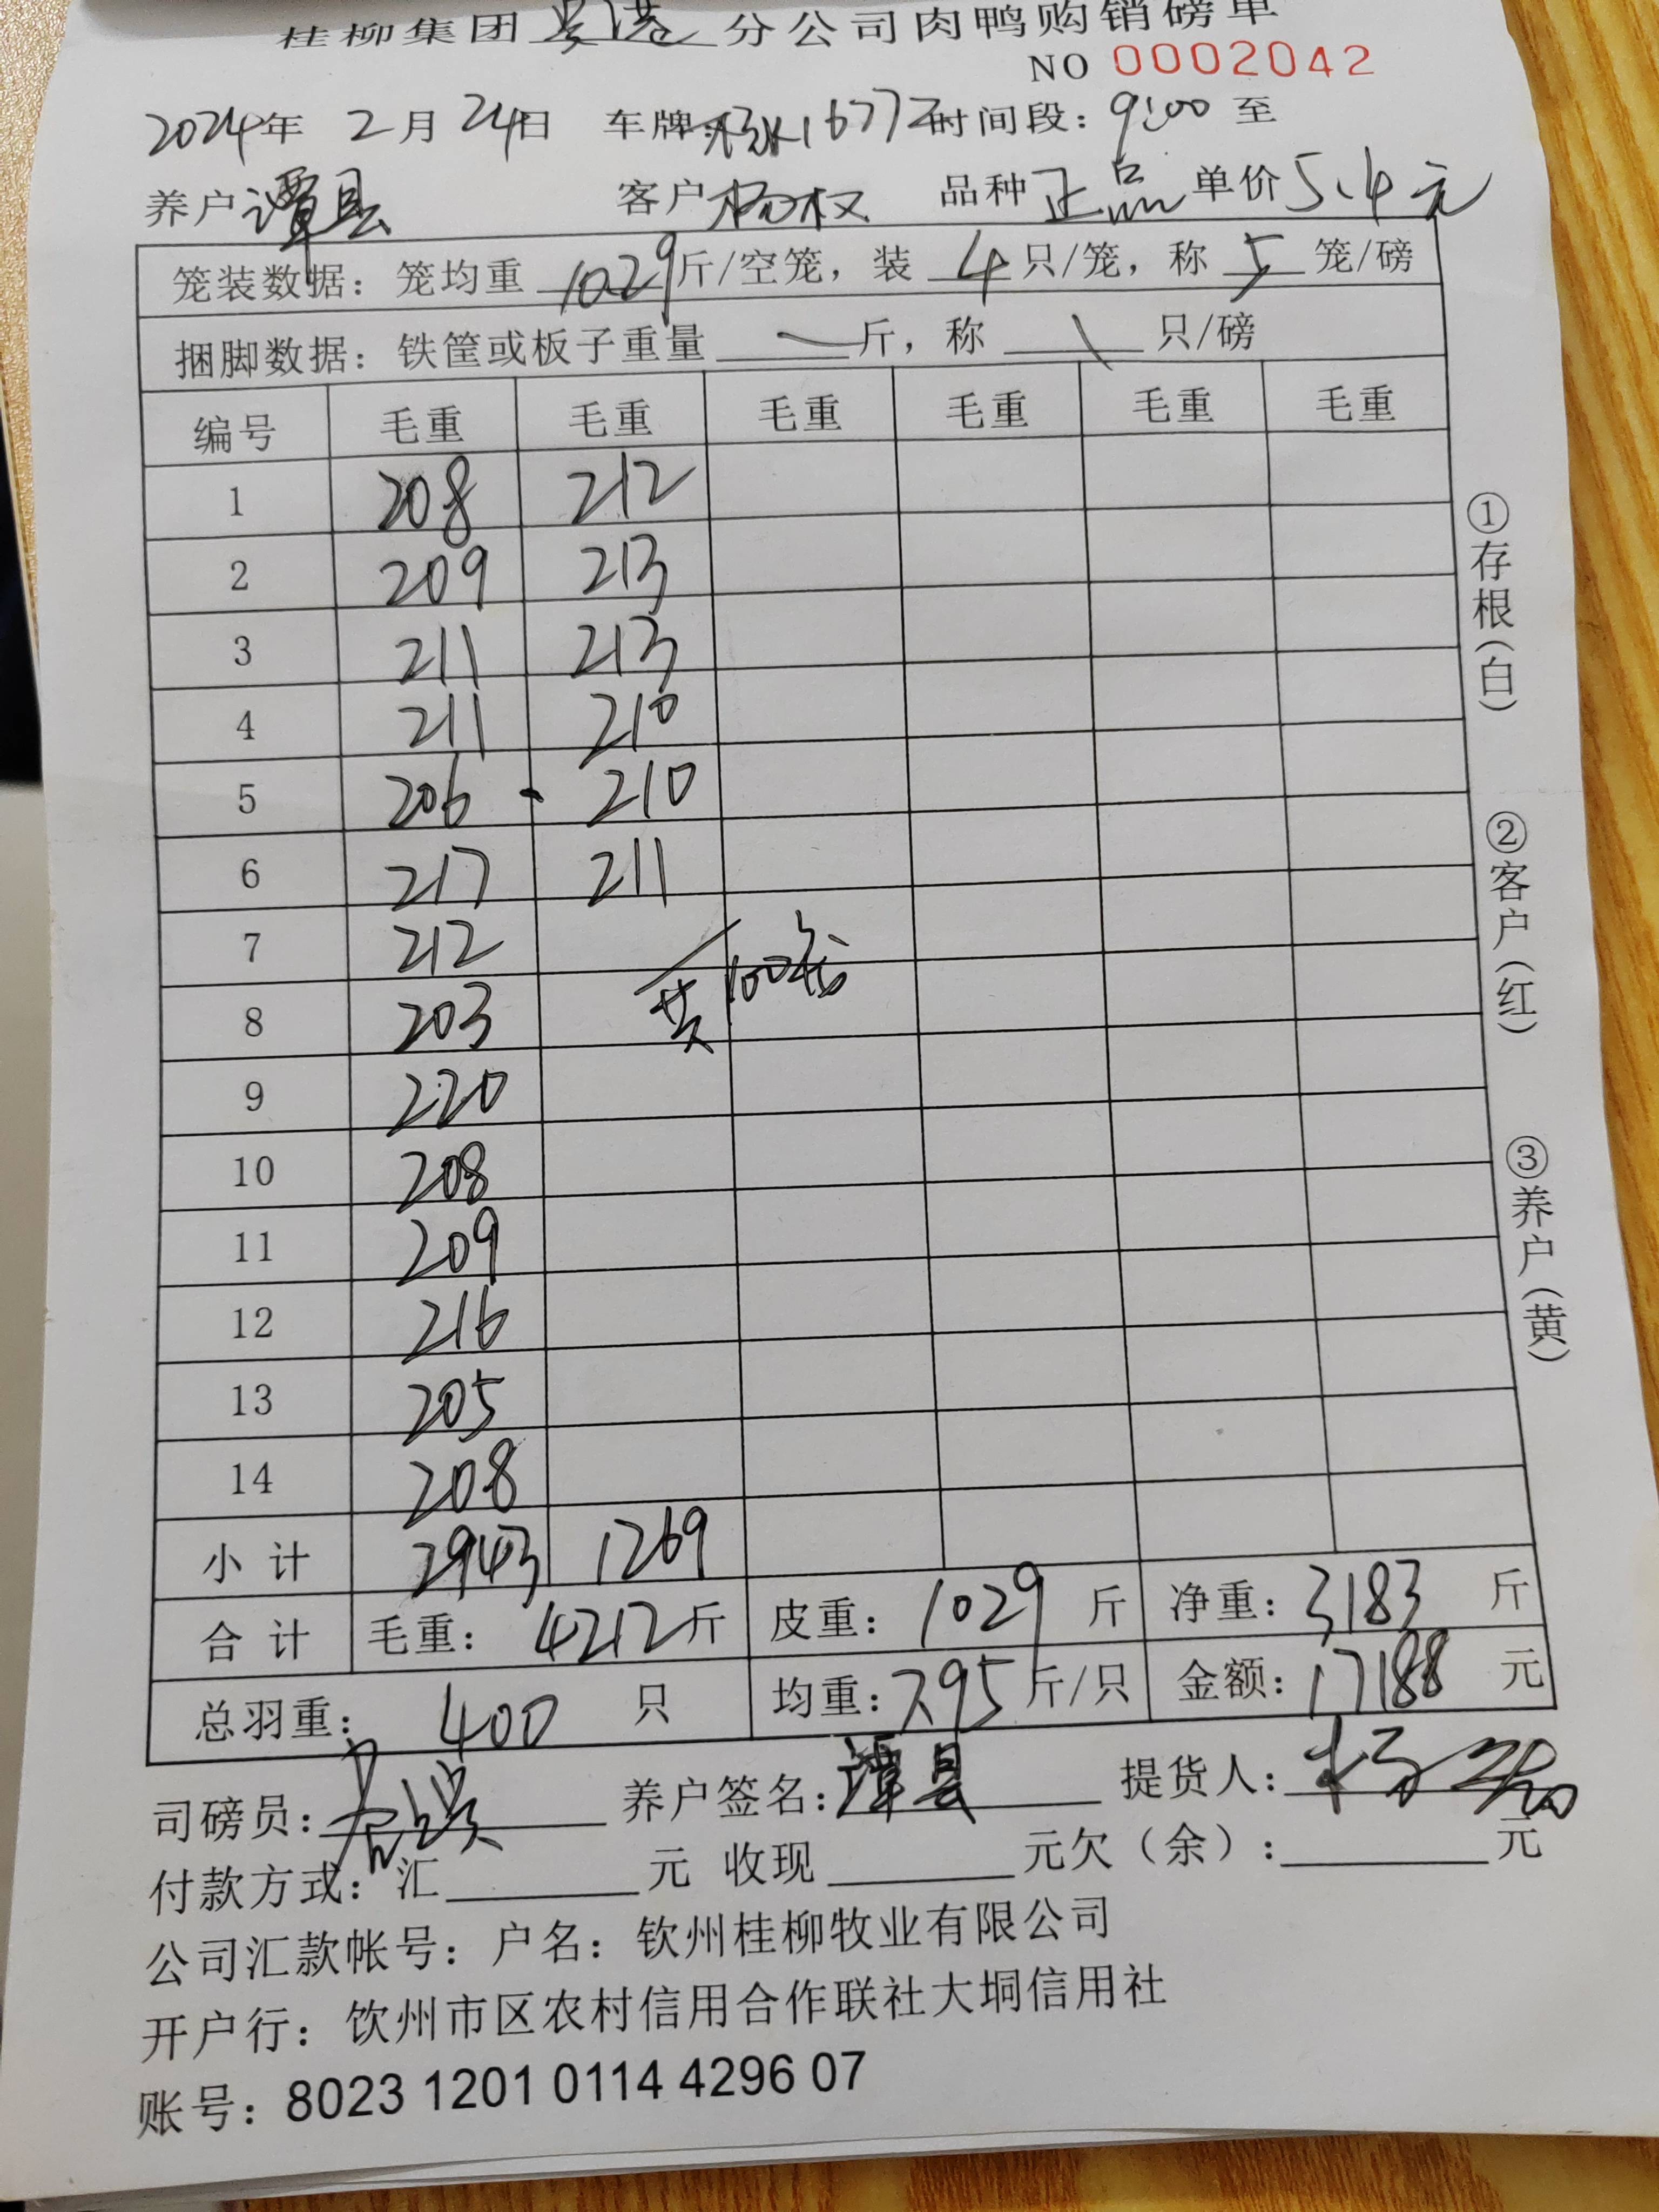 桂柳集团贵港分公司肉鸭购销磅单
NO 0002042
2024年 2月 24日 车牌: 1677Z 时间段: 9:00 至
养户 谭县 客户 杨权 品种 正品 单价 5.4元
笼装数据: 笼均重 1029 斤/空笼, 装 4 只/笼, 称 5 笼/磅
捆脚数据: 铁筐或板子重量 斤, 称 只/磅
编号 毛重 毛重 毛重 毛重 毛重 毛重
1 208 212
2 209 213
3 211 213
4 211 210
5 206 210
6 217 211
7 212
共100笼
8 203
9 220
10 208
11 209
12 216
13 205
14 208
小计 2943 1269
合计 毛重: 4212斤 皮重: 1029 斤 净重: 3183 斤
总羽重: 400 只 均重: 7.95 斤/只 金额: 17188 元
司磅员: 养户签名: 谭县 提货人:
付款方式: 汇 元 收现 元欠(余): 元
公司汇款帐号: 户名: 钦州桂柳牧业有限公司
开户行: 钦州市区农村信用合作联社大垌信用社
账号: 8023 1201 0114 4296 07
①存根(白)
②客户(红)
③养户(黄)